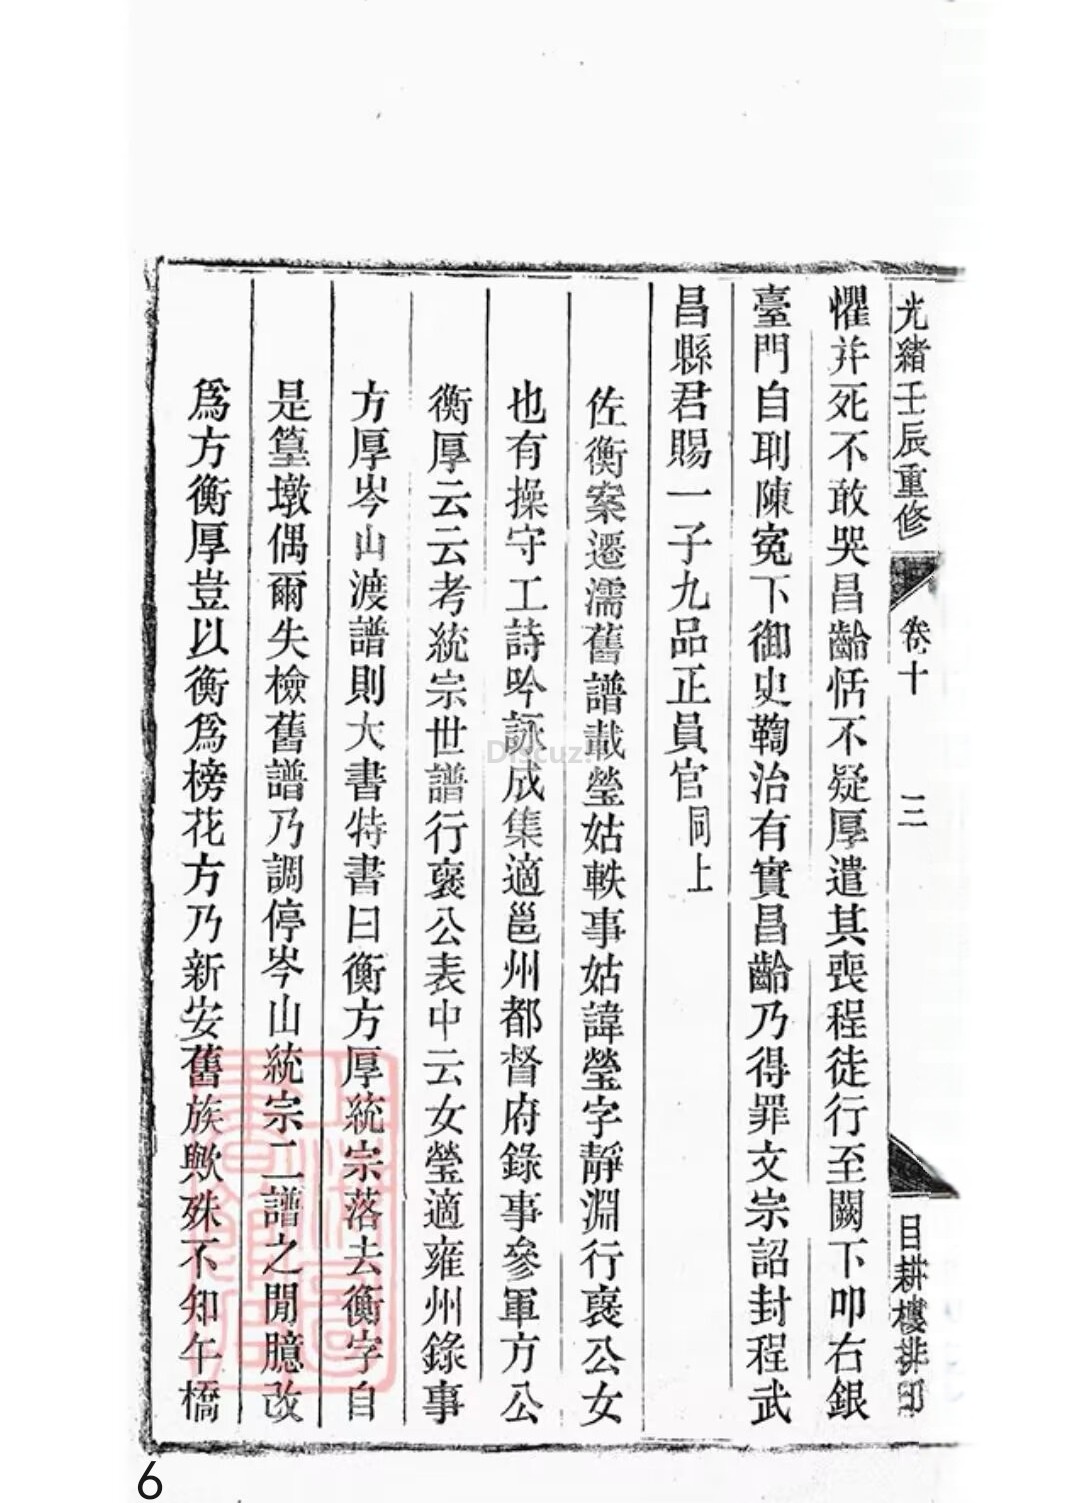 光緒壬辰重修
卷十
三
目耕樓排印
懼并死不敢哭昌齡恬不疑厚遣其喪程徒行至闕下叩右銀
臺門自刵陳冤下御史鞫治有實昌齡乃得罪文宗詔封程武
昌縣君賜一子九品正員官同上
佐衡案遷濡舊譜載瑩姑軼事姑諱瑩字靜淵行褒公女
也有操守工詩吟詠成集適邕州都督府錄事參軍方公
衡厚云云考統宗世譜行褒公表中云女瑩適雍州錄事
方厚岑山渡譜則大書特書曰衡方厚統宗落去衡字自
是篁墩偶爾失檢舊譜乃調停岑山統宗二譜之閒臆改
爲方衡厚豈以衡爲榜花方乃新安舊族歟殊不知午橋
Discuz!
6